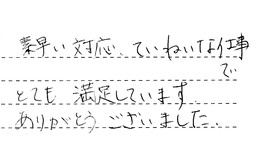 素早い対応、ていねいな仕事
で
とても 満足しています
ありがとう ございました.